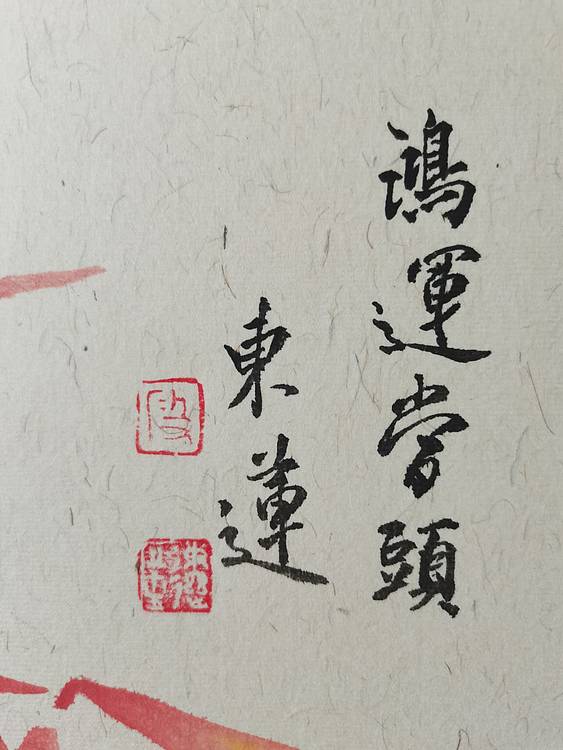 鴻運當頭
東蓮